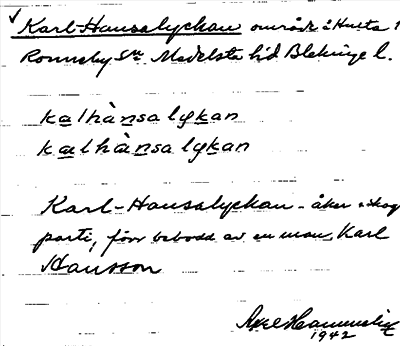 Karl-Hansalyckan område i Hulta 1
Ronneby Sn Medelsta hd Blekinge l.
kalhànsalykan
kælhànsalykan
Karl-Hansalyckan - åker o skog
parti, förr bebodd av en man, Karl
Hansson
Axel
1942